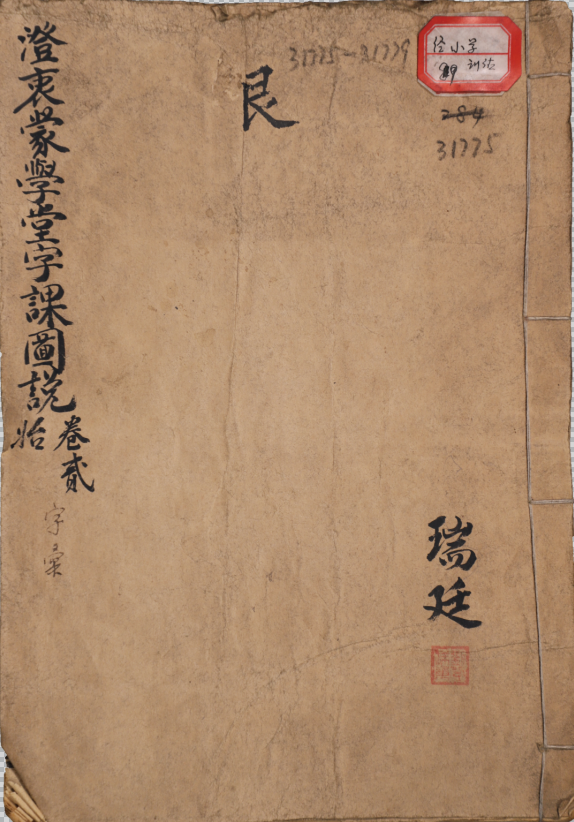 澄衷蒙學堂字課圖說
卷貳
字彙
艮
31775-31779
经小学
训诂
284
31775
瑞廷